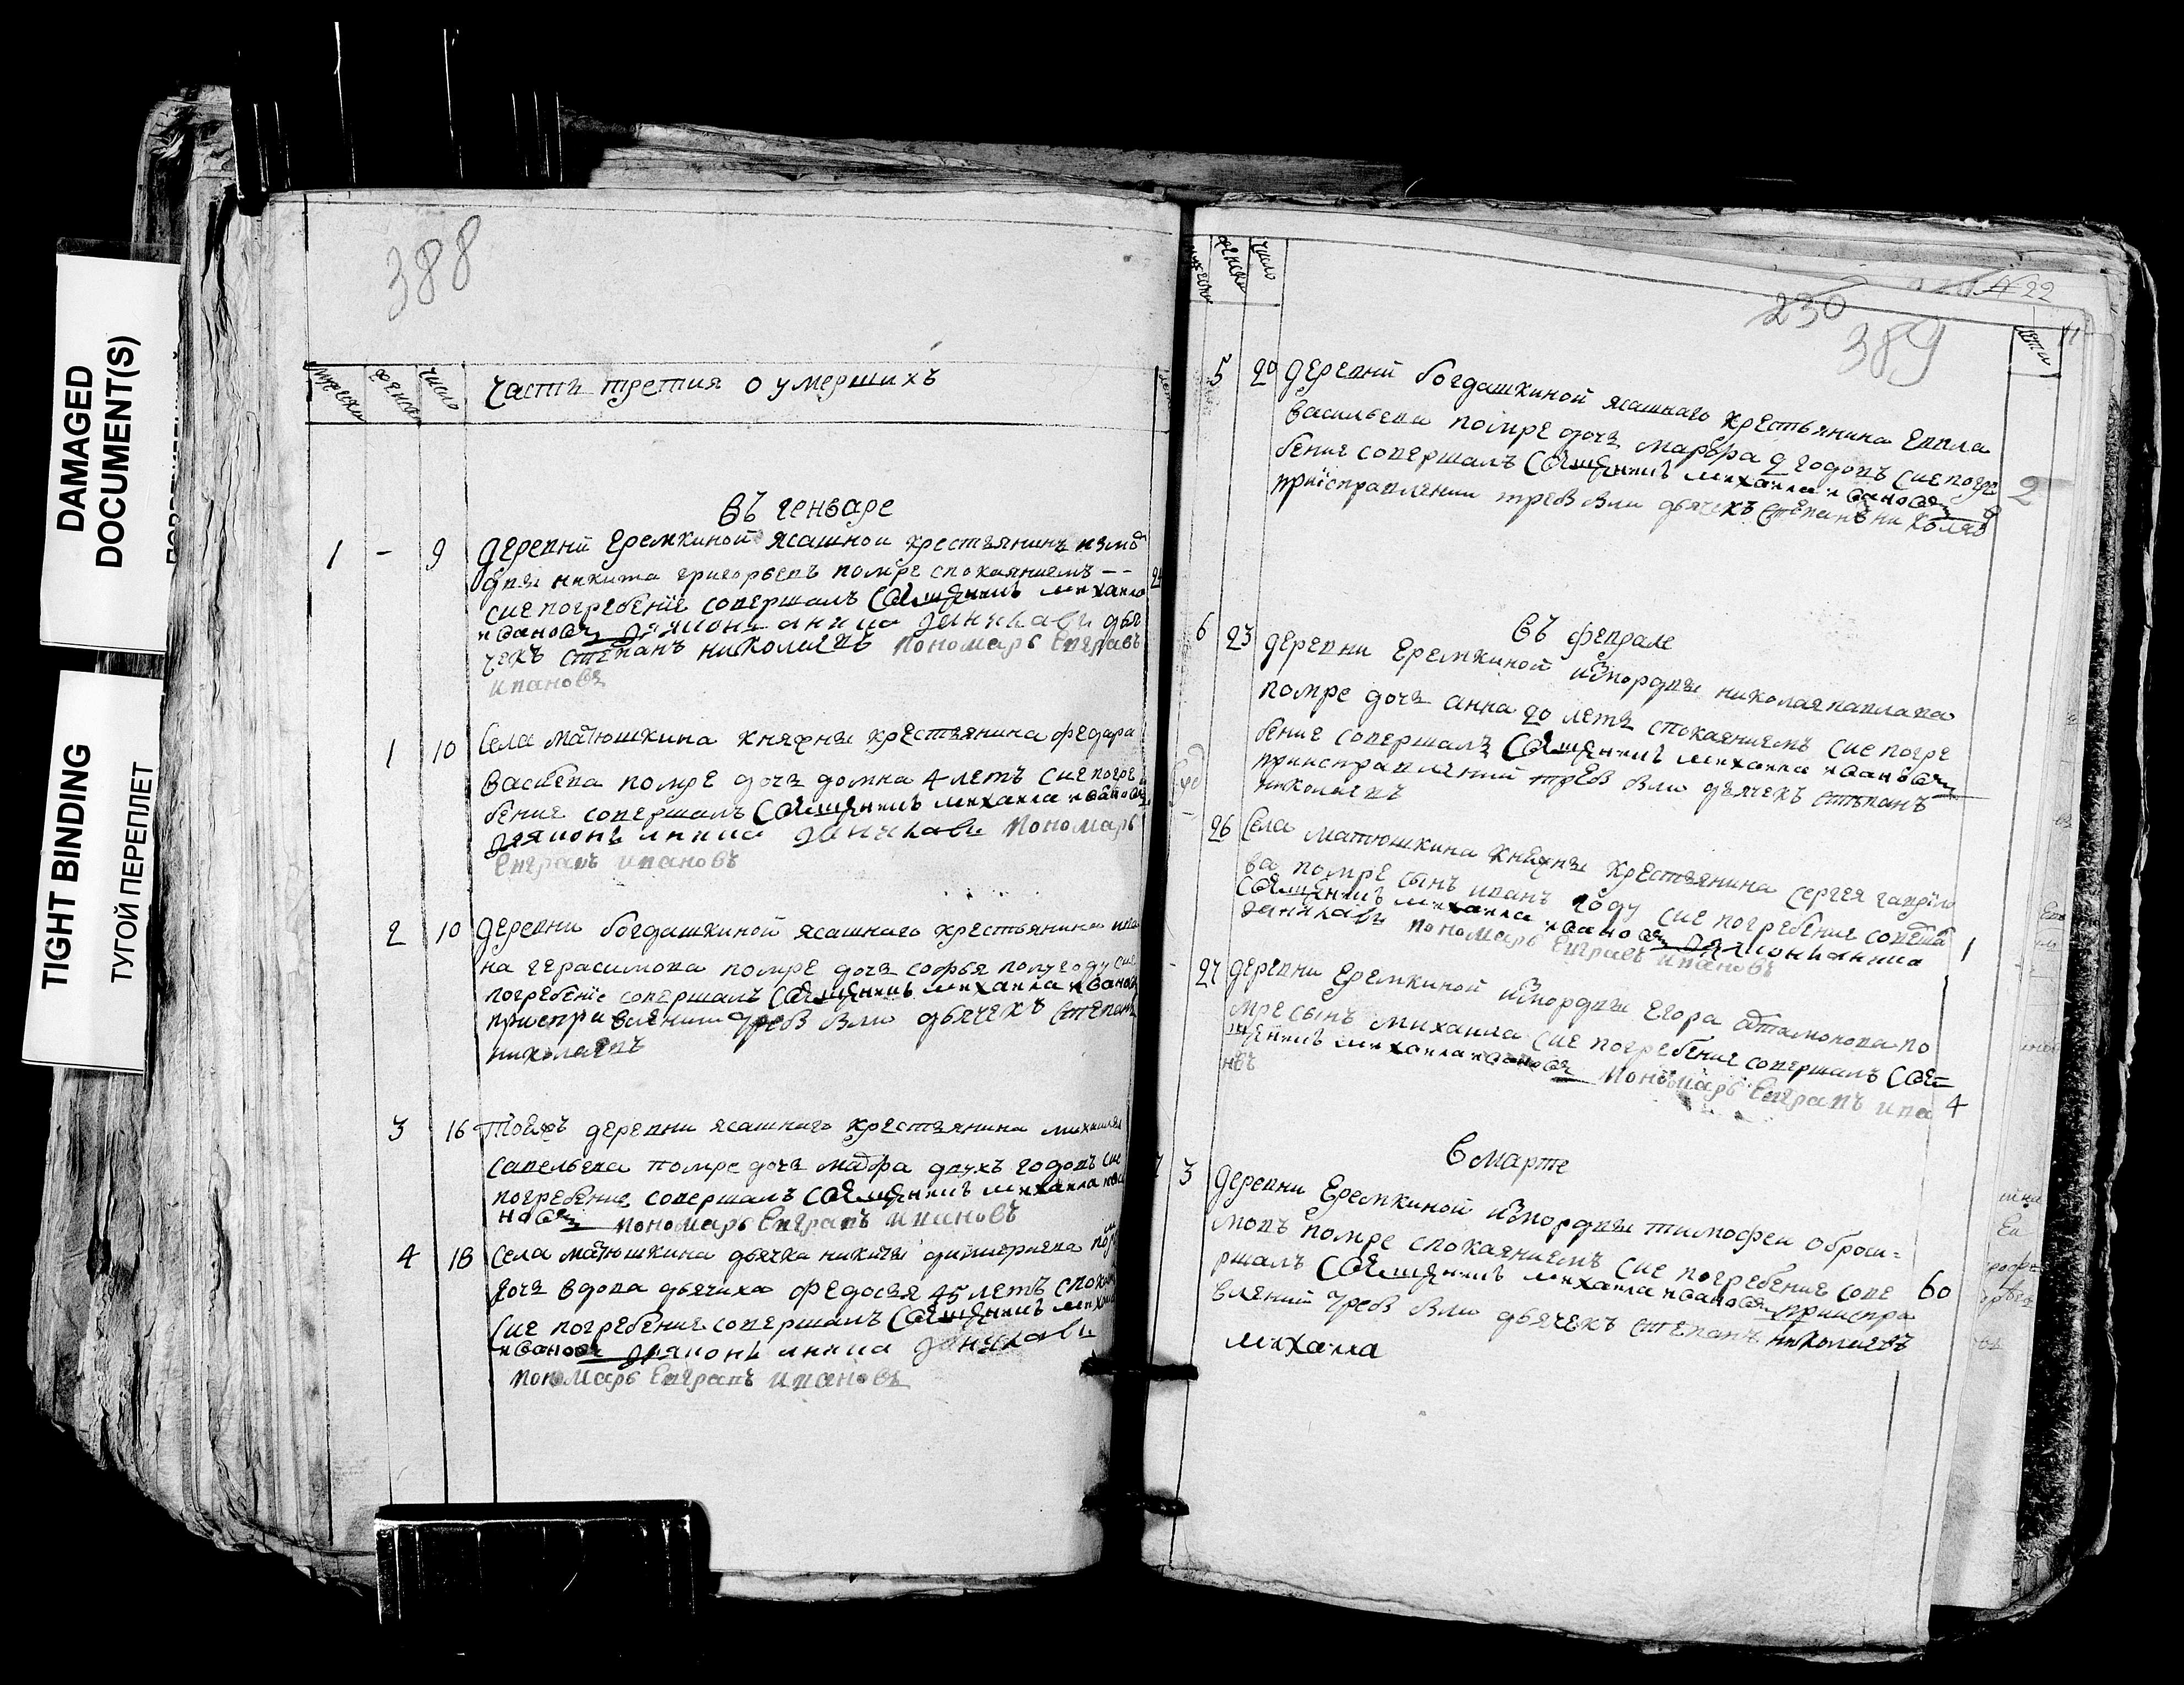 DAMAGED
DOCUMENT(S)
TIGHT BINDING
ТУГОЙ ПЕРЕПЛЕТ
388
мужеска
женска
число
часть третия о умершихъ
Въ генваре
1 - 9 деревни Еремкиной ясашной крестьянинъ
никита григорьевъ помре спокаянием --
сие погребение совершалъ Священникъ михаила
ивановъ дьяконъ данилавъ дья
чекъ степанъ николаевъ пономарь Евграфъ
ивановъ
1 10 Села матюшкина княжны крестьянина федора
васильева помре дочь домна 4 летъ сие погре
бение совершалъ Священникъ михаила ивановъ
дьяконъ данилавъ пономарь
Евграфъ ивановъ
2 10 деревни богдашкиной ясашнаго крестьянина ива
на герасимова помре дочь софья полугоду сие
погребение совершалъ Священникъ михаила иванов
приисправлении треб был дьячекъ степанъ
николаевъ
3 16 тоежъ деревни ясашнаго крестьянина михаила
савельева помре дочь двухъ годовъ сие
погребение совершалъ Священникъ михаила ива
новъ пономарь Евграфъ ивановъ
4 18 Села матюшкина дьячка никиты дмитриева
дочь вдова дьячиха федосья 45 летъ
сие погребение совершалъ Священникъ михаила
ивановъ дьяконъ данилавъ
пономарь Евграфъ ивановъ
женска
число
230
389
22
лета
5 20 деревни богдашкиной ясашнаго крестьянина
васильева помре дочь марфа 2 годовъ сие погре
бение совершалъ Священникъ михаила ивановъ 2
приисправлении треб был дьячекъ степанъ николаев
Въ феврале
6 23 деревни Еремкиной николая павлова
помре дочь анна 20 летъ спокаяниемъ сие погре
бение совершалъ Священникъ михаила ивановъ
приисправлении треб был дьячекъ степанъ
николаевъ
26 Села матюшкина княжны крестьянина сергея гаврило
ва помре сынъ иванъ году сие погребение
Священникъ михаила ивановъ дьяконъ 1
данилавъ пономарь Евграфъ ивановъ
27 деревни Еремкиной Егора артамонова по
мре сынъ михаила сие погребение совершалъ Свя
щенникъ михаила ивановъ пономарь Евграфъ ива 4
новъ
В марте
7 3 деревни Еремкиной тимофеи
помре спокаяниемъ сие погребение сове 60
ршалъ Священникъ михаила ивановъ приисправ
влений треб был дьячекъ степанъ николаевъ
михаила